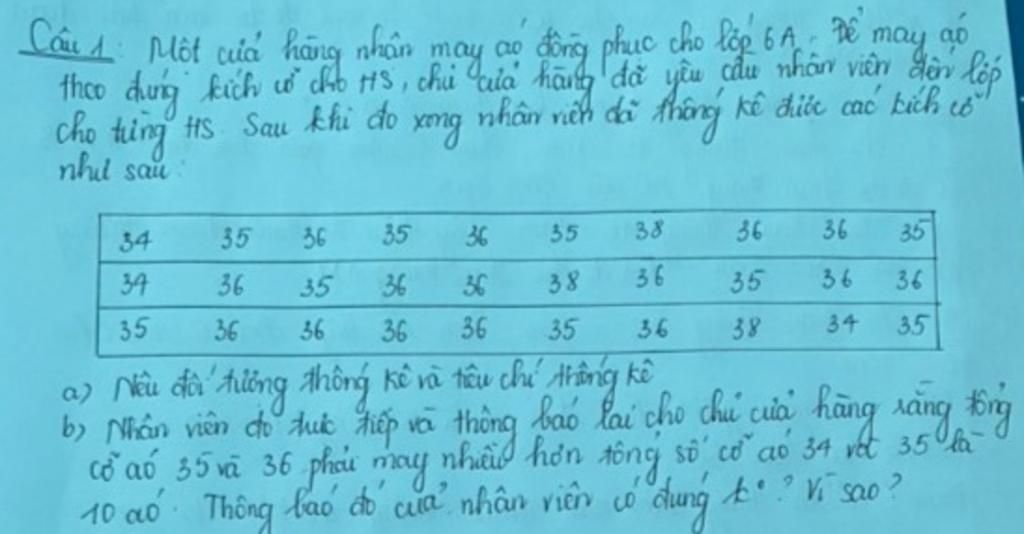 Câu 1: Một cửa hàng nhận may áo đồng phục cho lớp 6A. Để may áo
theo đúng kích cỡ cho HS, chủ cửa hàng đã yêu cầu nhân viên đến lớp
cho từng HS. Sau khi đo xong nhân viên đã thống kê được các kích cỡ
như sau:
34 35 36 35 36 35 38 36 36 35
34 36 35 36 36 38 36 35 36 36
35 36 36 36 36 35 36 38 34 35
a) Nêu đối tượng thống kê và tiêu chí thống kê
b) Nhân viên đo trực tiếp và thông báo lại cho chủ cửa hàng rằng tổng
cỡ áo 35 và 36 phải may nhiều hơn tổng số cỡ áo 34 với 35 là
10 áo. Thông báo đó của nhân viên có đúng k°? Vì sao?